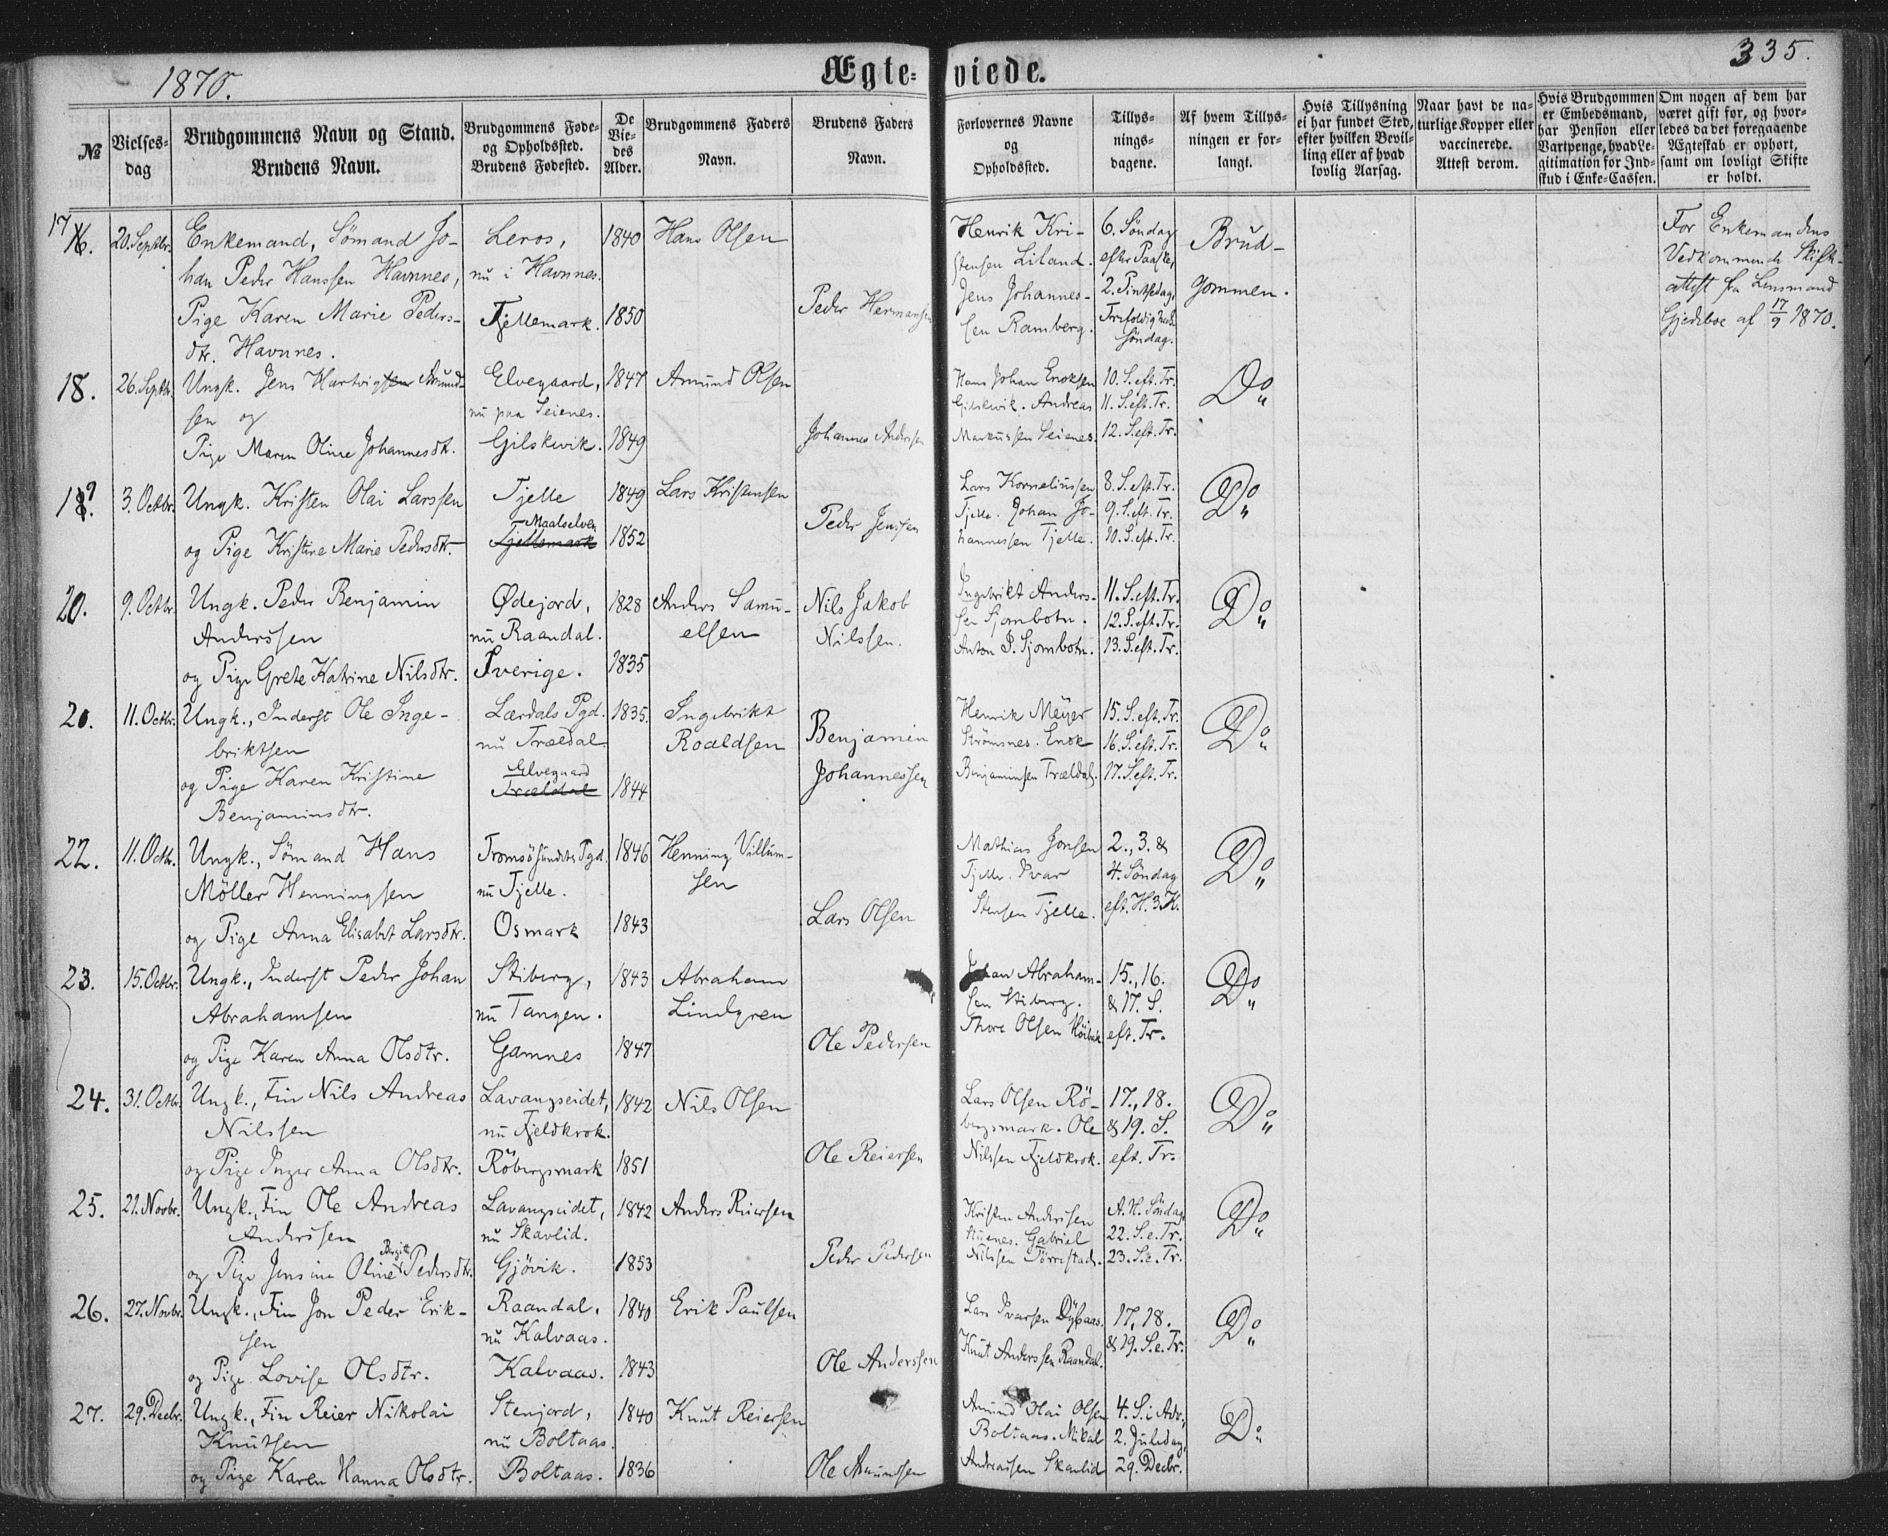 1870.
Ægte-
viede.
335.
№
Vielses-
dag
Brudgommens Navn og Stand.
Brudens Navn.
Brudgommens Føde-
og Opholdssted.
Brudens Fødested.
De
Vie-
des
Alder.
Brudgommens Faders
Navn.
Brudens Faders
Navn.
Forlovernes Navne
og
Opholdssted.
Tillys-
nings-
dagene.
Af hvem Tillys-
ningen er for-
langt.
Hvis Tillysning
ei har fundet Sted,
efter hvilken Bevil-
ling eller af hvad
lovlig Aarsag.
Naar havt de na-
turlige Kopper eller
vaccinerede.
Attest derom.
Hvis Brudgommen
er Embedsmand,
har Pension eller
Vartpenge, hvad Le-
gitimation for Ind-
skud i Enke-Cassen.
Om nogen af dem har
været gift før, og hvor-
ledes da det foregaaende
Ægteskab er ophørt,
samt om lovligt Skifte
er holdt.
17
16.
20. Septbr.
Enkemand, Sömand Jo-
han Peder Hanssen Havnnes,
Pige Karen Marie Peders-
dtr. Havnnes.
Leros,
nu i Havnnes.
Fjellemark.
1840
1850
Hans Olsen
Peder Hermansen
Henrik Kri-
stensen Liland.
Jens Johannes-
sen Ramberg.
6. Söndag
efter Paaske,
2. Pintsedag,
Trefoldigheds
söndag.
Brud-
gommen.
For Enkemandens
Vedkommende Skift-
attest fra Lensmand
Gjedeboe af 17/9 1870.
18.
26. Septbr.
Ungk. Jens Hartvigsen Amund-
sen og
Pige Maren Oline Johannesdt.
Elvegaard,
nu paa Seienes.
Gilskevik.
1847
1849
Amund Olsen
Johannes Andersen
Hans Johan Enoksen
Gilskevik. Andreas
Markussen Seienes.
10. S. eft. Tr.
11. S. eft. Tr.
12. S. eft. Tr.
Do
19.
3. Octbr.
Ungk. Kristen Olai Larssen
og Pige Kristine Marie Pedersdtr.
Fjelle
Maalselven
Fjellemark
1849
1852
Lars Kristensen
Peder Jensen
Lars Korneliussen
Fjelle. Johan Jo-
hannessen Fjelle.
8. S. eft. Tr.
9. S. eft. Tr.
10. S. eft. Tr.
Do
20.
9. Octbr.
Ungk. Peder Benjamin
Anderssen
og Pige Grete Katrine Nilsdtr.
Ødejord,
nu Raandal.
Sverige.
1828
1835
Anders Samu-
elsen
Nils Jakob
Nilssen.
Ingebrikt Anders-
sen Sjombotn.
Anton P. Sjombotn.
11. S. eft. Tr.
12. S. eft. Tr.
13. S. eft. Tr.
Do
21.
11. Octbr.
Ungk., Inderst Ole Inge-
briktsen
og Pige Karen Kristine
Benjaminsdtr.
Lærdals Pgd.
nu Trældal.
Elvegaard
Trældal
1835.
1844
Ingebrikt
Roaldsen
Benjamin
Johannessen
Henrik Meyer
Strömsnes. Enok
Benjaminsen Træeldal.
15. S. eft. Tr.
16. S. eft. Tr.
17. S. eft. Tr.
Do
22.
11. Octbr.
Ungk., Sömand Hans
Möller Henningsen
og Pige Anna Elisabet Larsdtr.
Tromsösundets Pgd.
nu Fjelle.
Osmark
1846
1843
Henning Villum-
sen
Lars Olsen
Mathias Jonsen
Fjelle. Ivar
Stensen Fjelle.
2., 3. &
4. Söndag
eft. H. 3. K.
Do
23.
15. Octbr.
Ungk., Inderst Peder Johan
Abrahamsen
og Pige Karen Anna Olsdtr.
Stiberg,
nu Tangen.
Gamnes
1843
1847
Abraham
Lindgren
Ole Pedersen
Johan Abraham-
sen Stiberg.
Thore Olsen
15., 16.
& 17. S.
eft. Tr.
Do
24.
31. Octbr.
Ungk., Fin Nils Andreas
Nilssen
og Pige Inger Anna Olsdtr.
Lavangseidet,
nu Fjeldkrok.
Röbergsmark
1842
1851
Nils Olsen
Ole Reiersen
Lars Olsen Rö-
bergsmark. Ole
Nilssen Fjeldkrok.
17., 18.
& 19. S.
eft. Tr.
Do
25.
21. Novbr.
Ungk., Fin Ole Andreas
Anderssen
og Pige Jensine Oline Birgitte Pedersdtr.
Lavangseidet,
nu Skavlid.
Gjövik.
1842
1853
Anders Reiersen
Peder Pedersen
Kristen Andersen
Gabriel
Nilssen Törrestad.
A. H. Söndag
22. S. e. Tr.
23. S. e. Tr.
Do
26.
27. Novbr.
Ungk., Fin Jon Peder Erik-
sen
og Pige Lovise Olsdtr.
Raandal,
nu Kalvaas.
Kalvaas.
1840
1843
Erik Paulsen
Ole Anderssen
Lars Ivarsen Dybaas.
Knut Anderssen Raandal.
17., 18.
& 19. S. e. Tr.
Do
27.
29. Decbr.
Ungk., Fin Reier Nikolai
Knutsen
og Pige Karen Hanna Olsdtr.
Stenjord,
nu Boltaas.
Boltaas.
1840
1836
Knut Reiersen
Ole Amundsen
Amund Olai Olsen
Boltaas. Mikal
Andreassen Skavlid
4. S. i Adv.,
2. Juledag,
29. Decbr.
Do